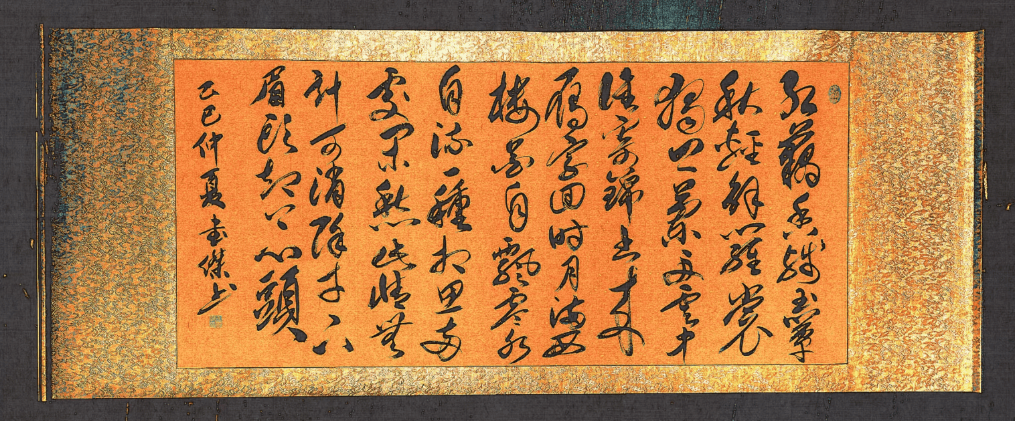 红藕香残玉簟
秋輕解羅裳
獨上蘭舟雲中
誰寄錦书来
雁字回时月满西
楼花自飄零水
自流一種相思兩
處闲愁此情無
计可消除才下
眉頭却上心頭
乙巳仲夏书傑